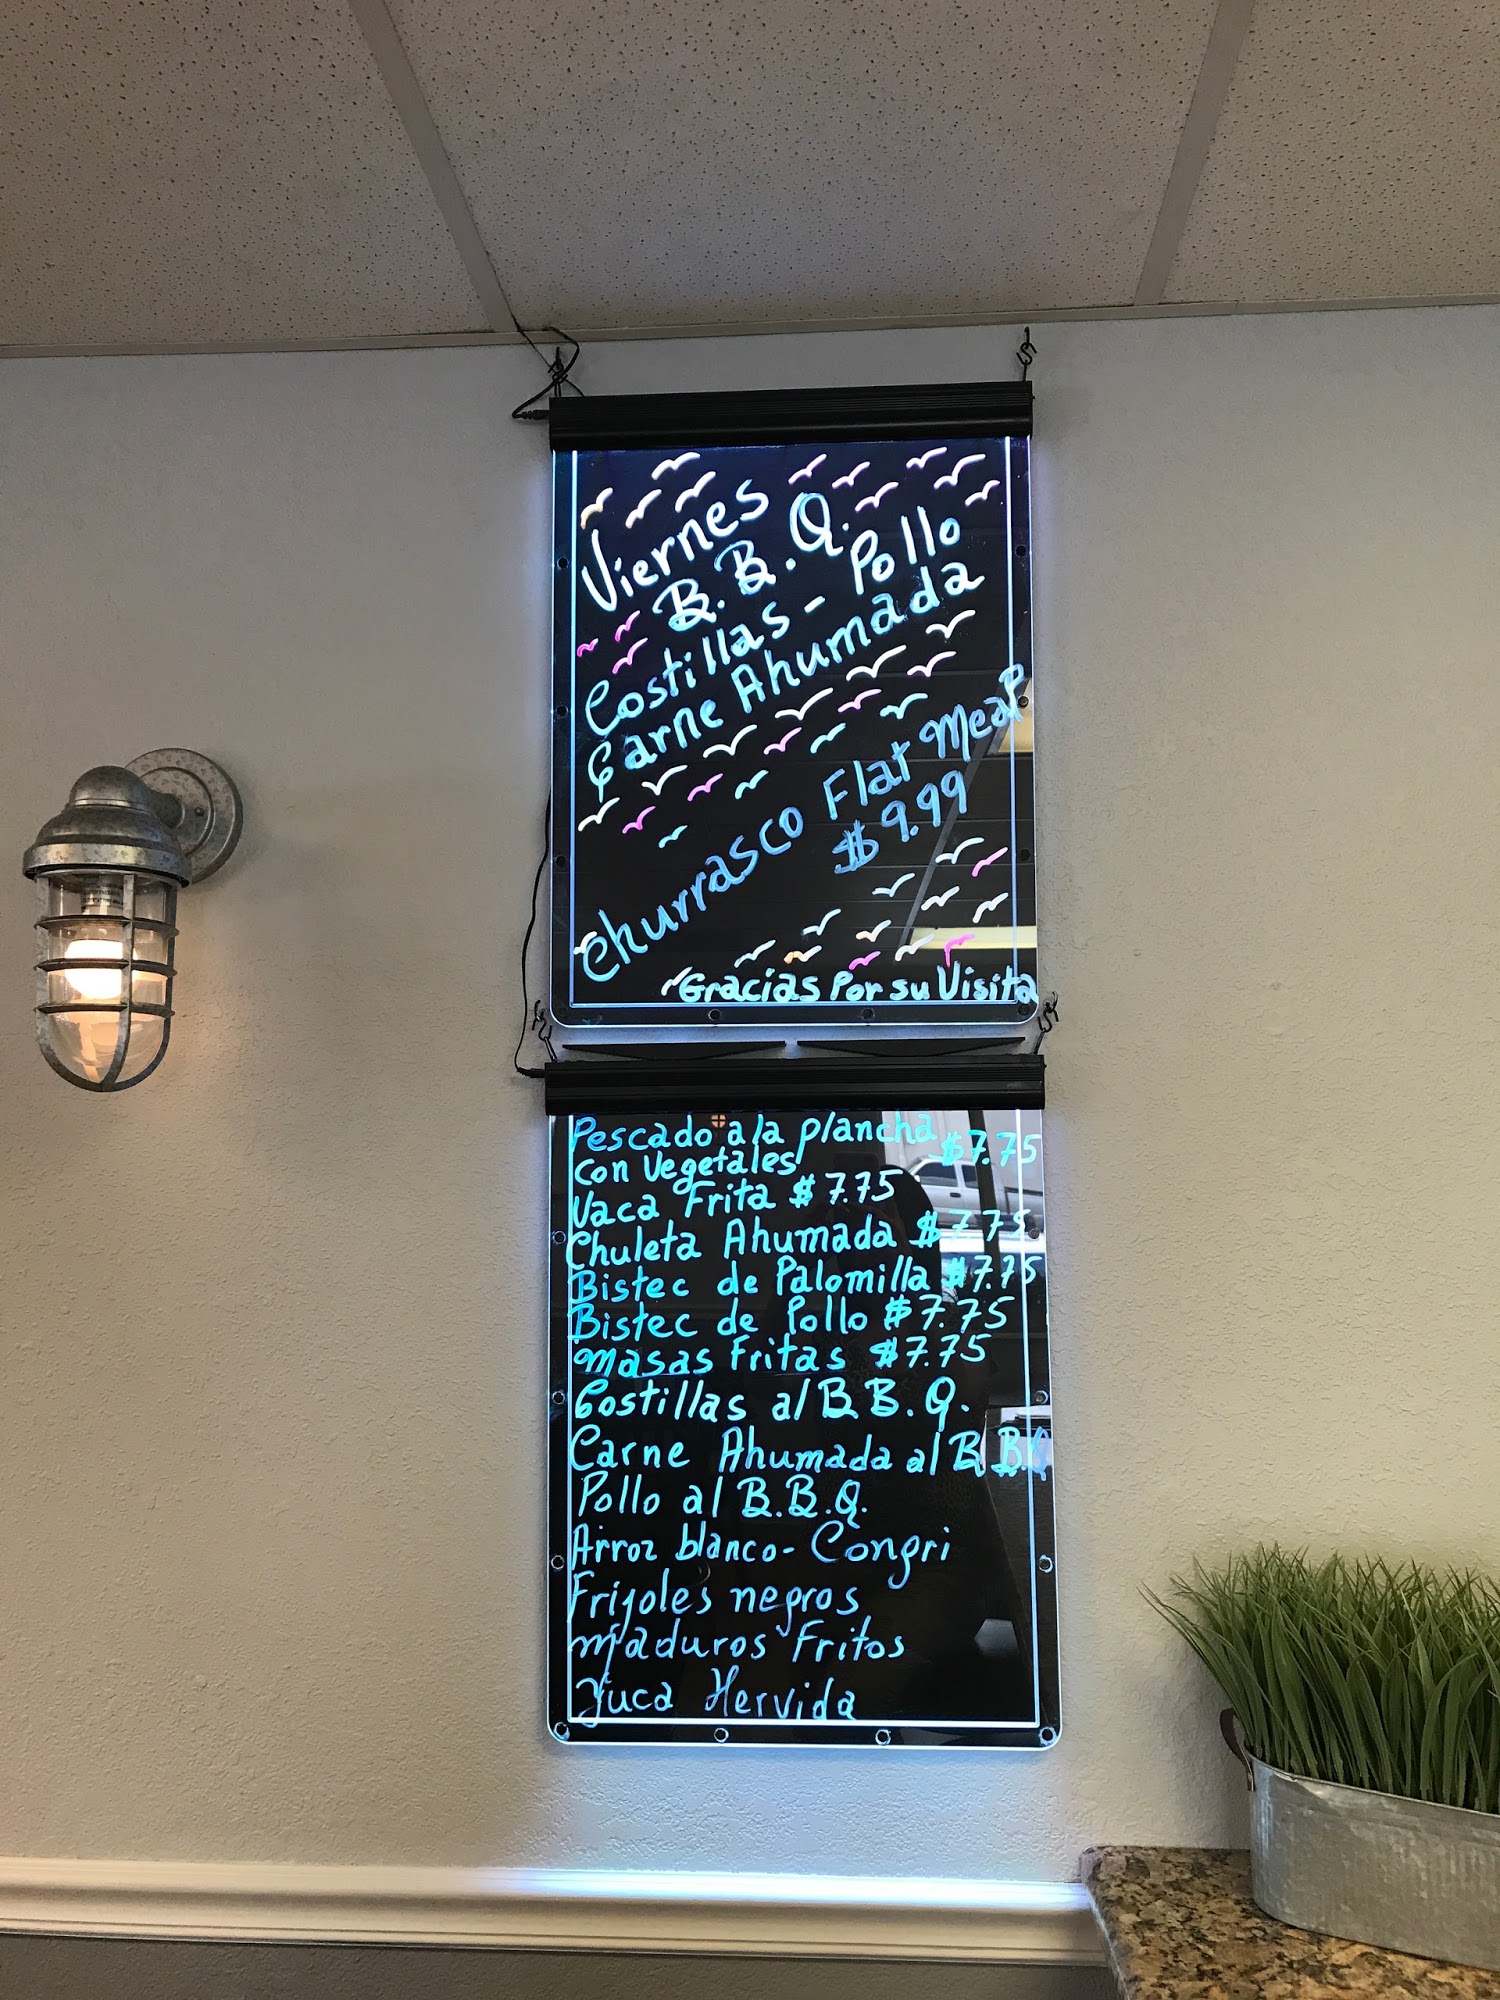 Viernes
B.B.Q.
Costillas - Pollo
Carne Ahumada
Churrasco Flat Meat
$9.99
Gracias Por su Visita
Pescado a la plancha $7.75
con Vegetales
Vaca Frita $7.75
Chuleta Ahumada $7.75
Bistec de Palomilla $7.75
Bistec de Pollo $7.75
Masas Fritas $7.75
Costillas al B.B.Q.
Carne Ahumada al B.B.Q
Pollo al B.B.Q.
Arroz blanco - Congri
Frijoles negros
maduros Fritos
Yuca Hervida